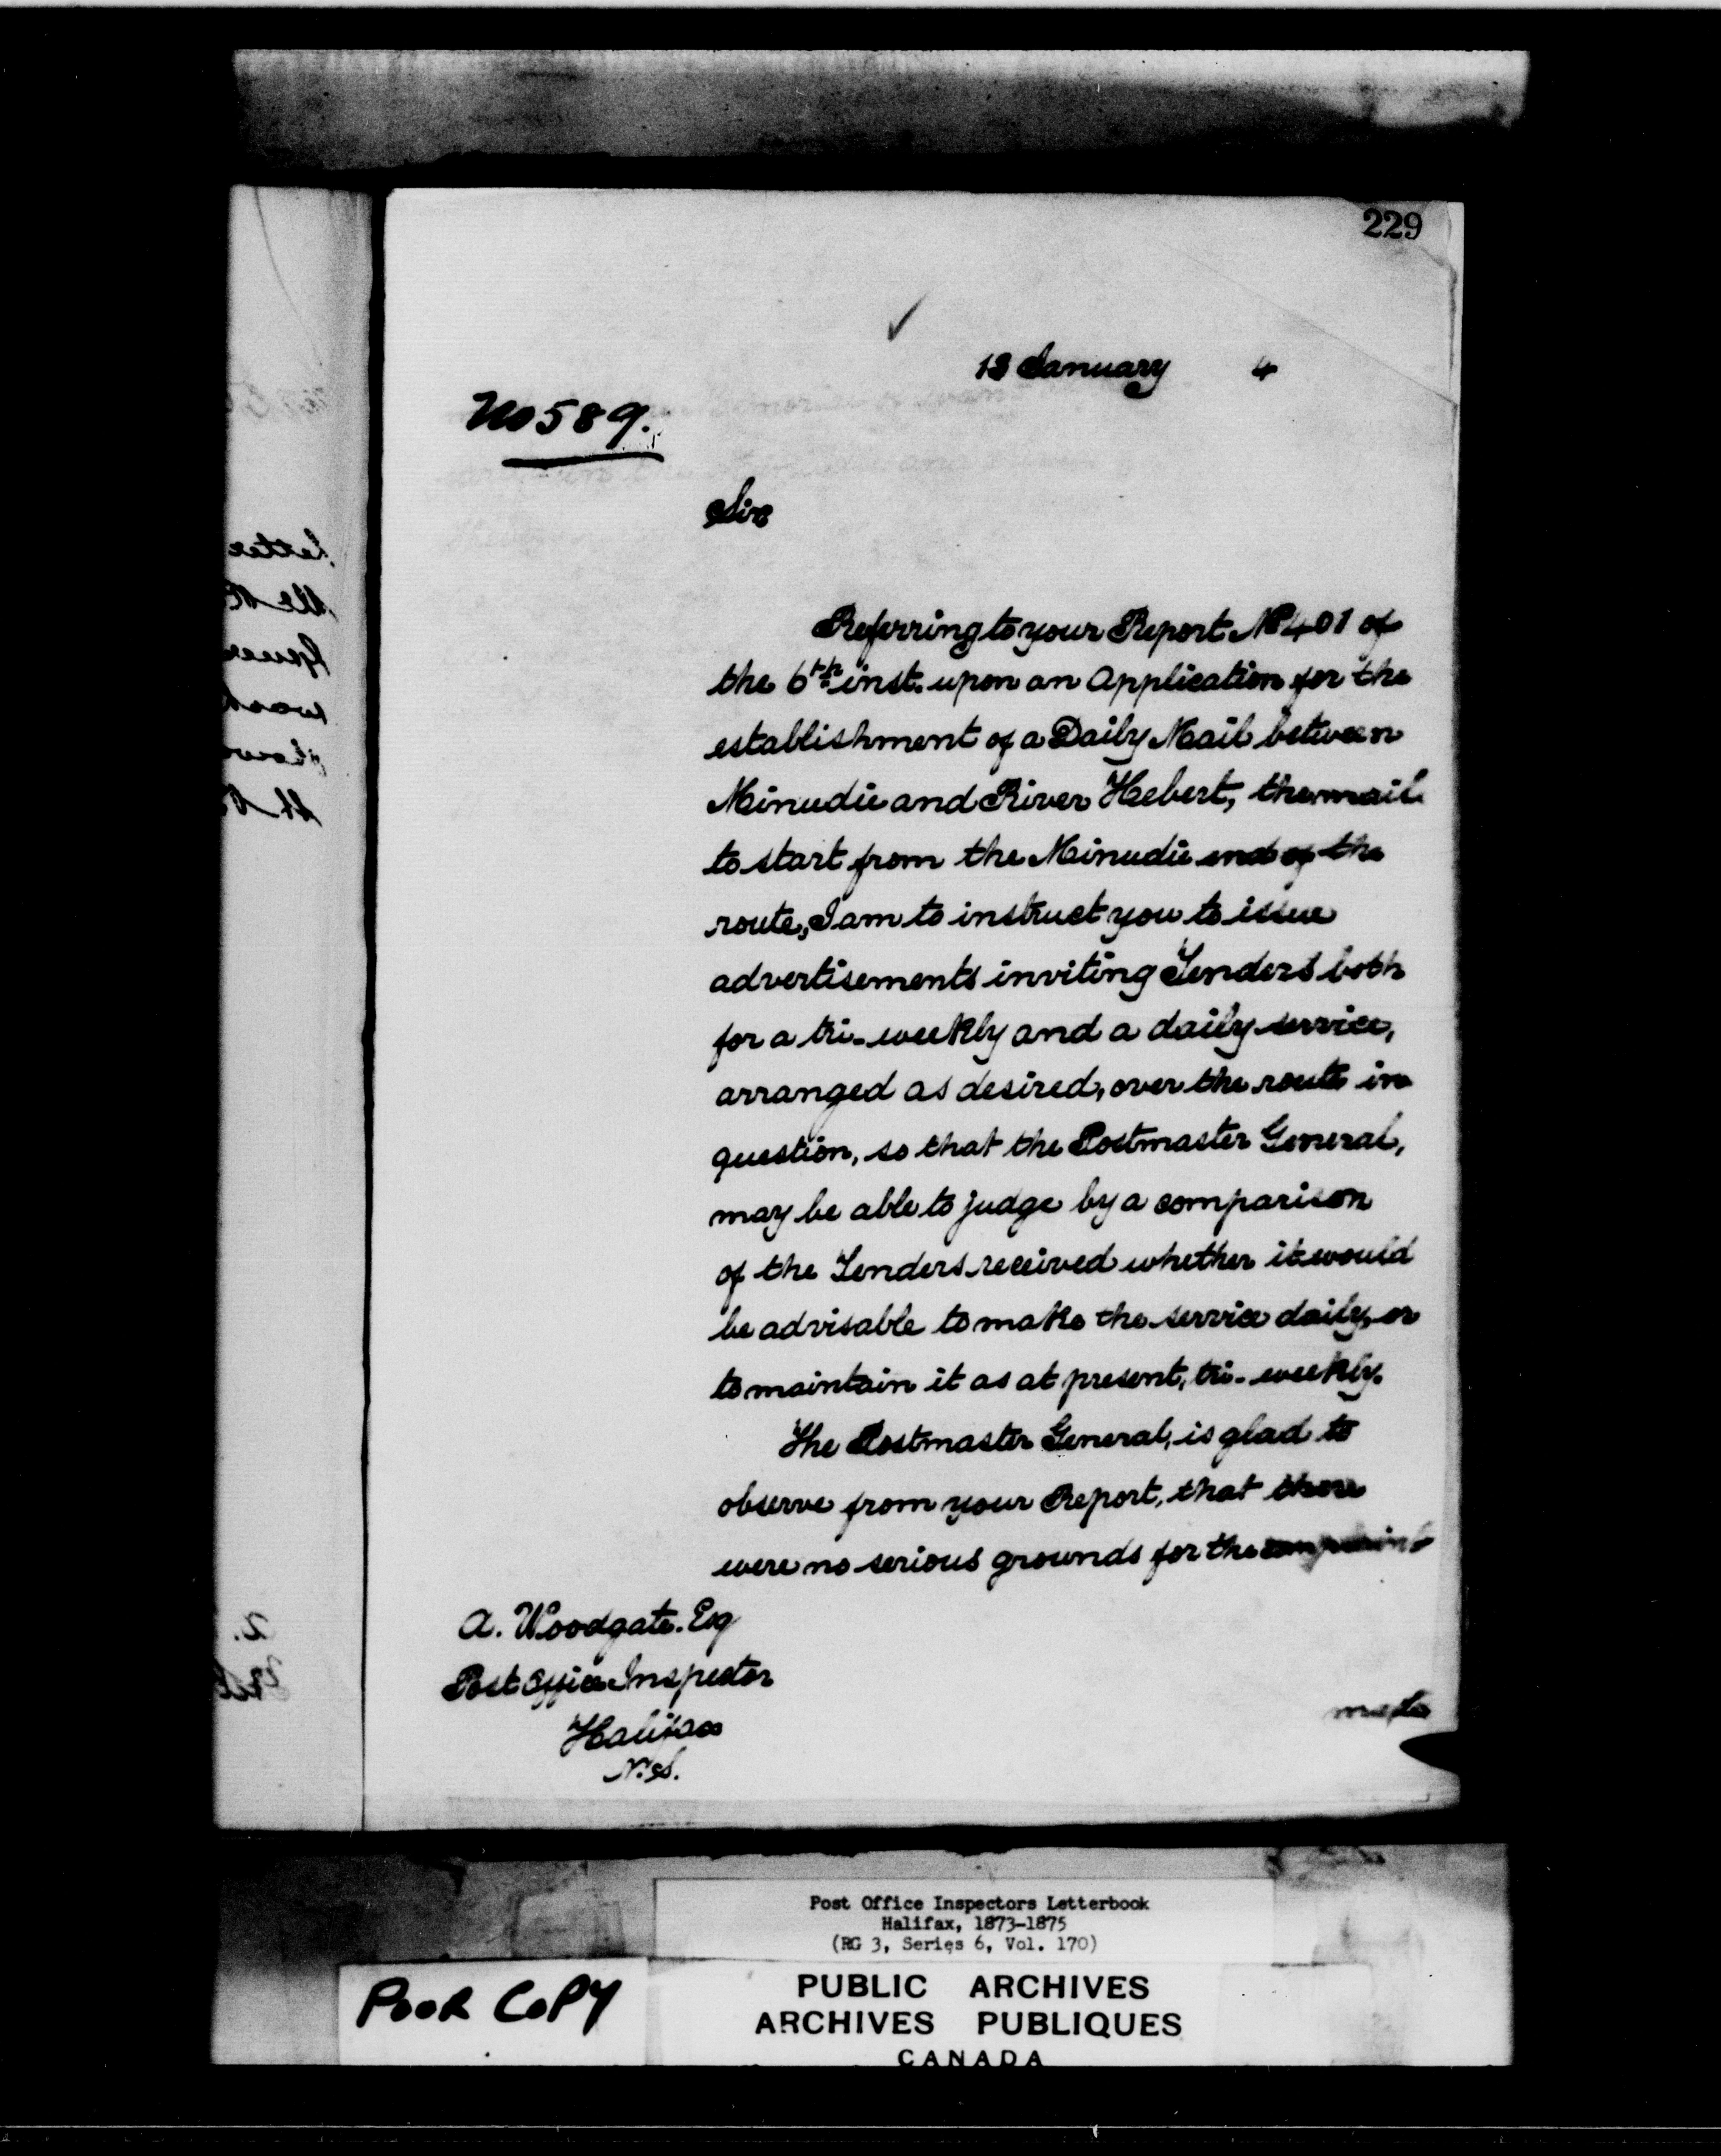 229
13 January 4
No 589.
Sir
Referring to your Report No 401 of
the 6th inst. upon an Application for the
establishment of a Daily Mail between
Minudie and River Hebert, the mail
to start from the Minudie end of the
route, I am to instruct you to issue
advertisements inviting Tenders both
for a tri-weekly and a daily service,
arranged as desired, over the route in
question, so that the Postmaster General,
may be able to judge by a comparison
of the Tenders received whether it would
be advisable to make the service daily, or
to maintain it as at present, tri-weekly.
The Postmaster General, is glad to
observe from your Report, that there
were no serious grounds for the complaint
A. Woodgate. Esq
Post Office Inspector
Halifax
N.S.
made
Post Office Inspectors Letterbook
Halifax, 1873-1875
(RG 3, Series 6, Vol. 170)
POOR COPY
PUBLIC ARCHIVES
ARCHIVES PUBLIQUES
CANADA